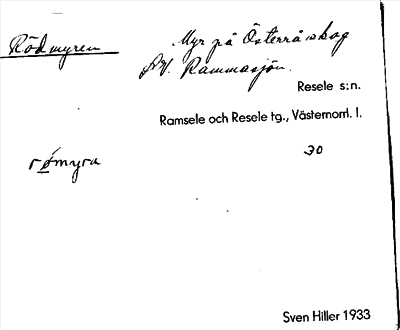 Rödmyren
Myr på Österråskog
NV. Rammasjön.
Resele s:n.
Ramsele och Resele tg., Västernorrl. l.
30
rømyra
Sven Hiller 1933